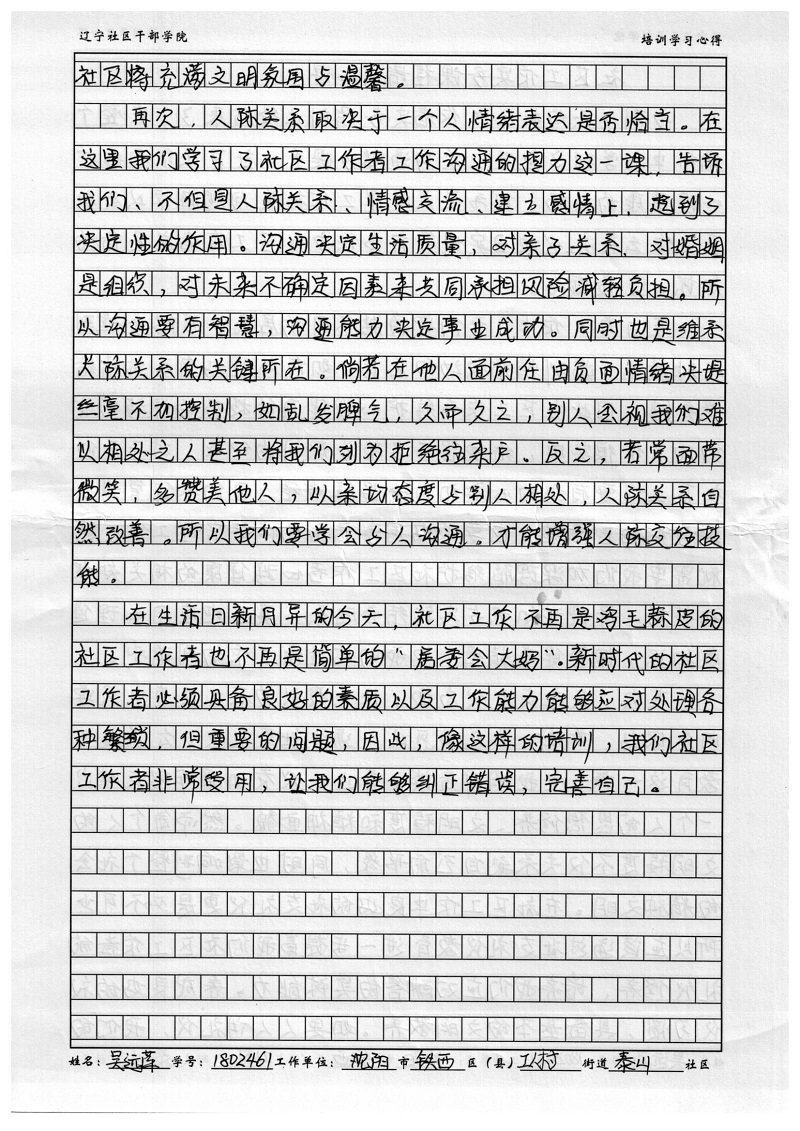 辽宁社区干部学院 培训学习心得
社区将充满文明氛围与温馨。
再次,人际关系取决于一个人情绪表达是否恰当。在
这里我们学习了社区工作者工作沟通的握力这一课,告诉
我们、不但是人际关系、情感交流、建立感情上,起到了
决定性的作用。沟通决定生活质量,对亲子关系、对婚姻
是组织,对未来不确定因素来共同承担风险减轻负担。所
以沟通要有智慧,沟通能力决定事业成功。同时也是维系
人际关系的关键所在。倘若在他人面前任由负面情绪决堤
丝毫不加控制,如乱发脾气,久而久之,别人会视我们难
以相处之人甚至将我们列为拒绝往来户。反之,若常面带
微笑,多赞美他人,以亲切态度与别人相处,人际关系自
然改善。所以我们要学会与人沟通。才能增强人际交往技
能。
在生活日新月异的今天,社区工作不再是鸡毛蒜皮的
社区工作者也不再是简单的“居委会大妈”.新时代的社区
工作者必须具备良好的素质以及工作能力能够应对处理各
种繁琐,但重要的问题,因此,像这样的培训,我们社区
工作者非常受用,让我们能够纠正错误,完善自己。
姓名:吴远苹 学号:1802461 工作单位:沈阳 市 铁西 区(县) 工人村 街道 泰山 社区